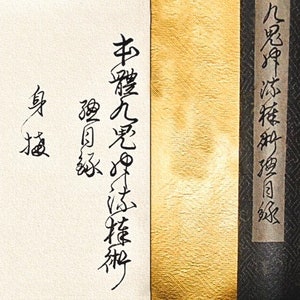 九鬼神流棒術總目録
本體九鬼神流棒術
總目録
身構